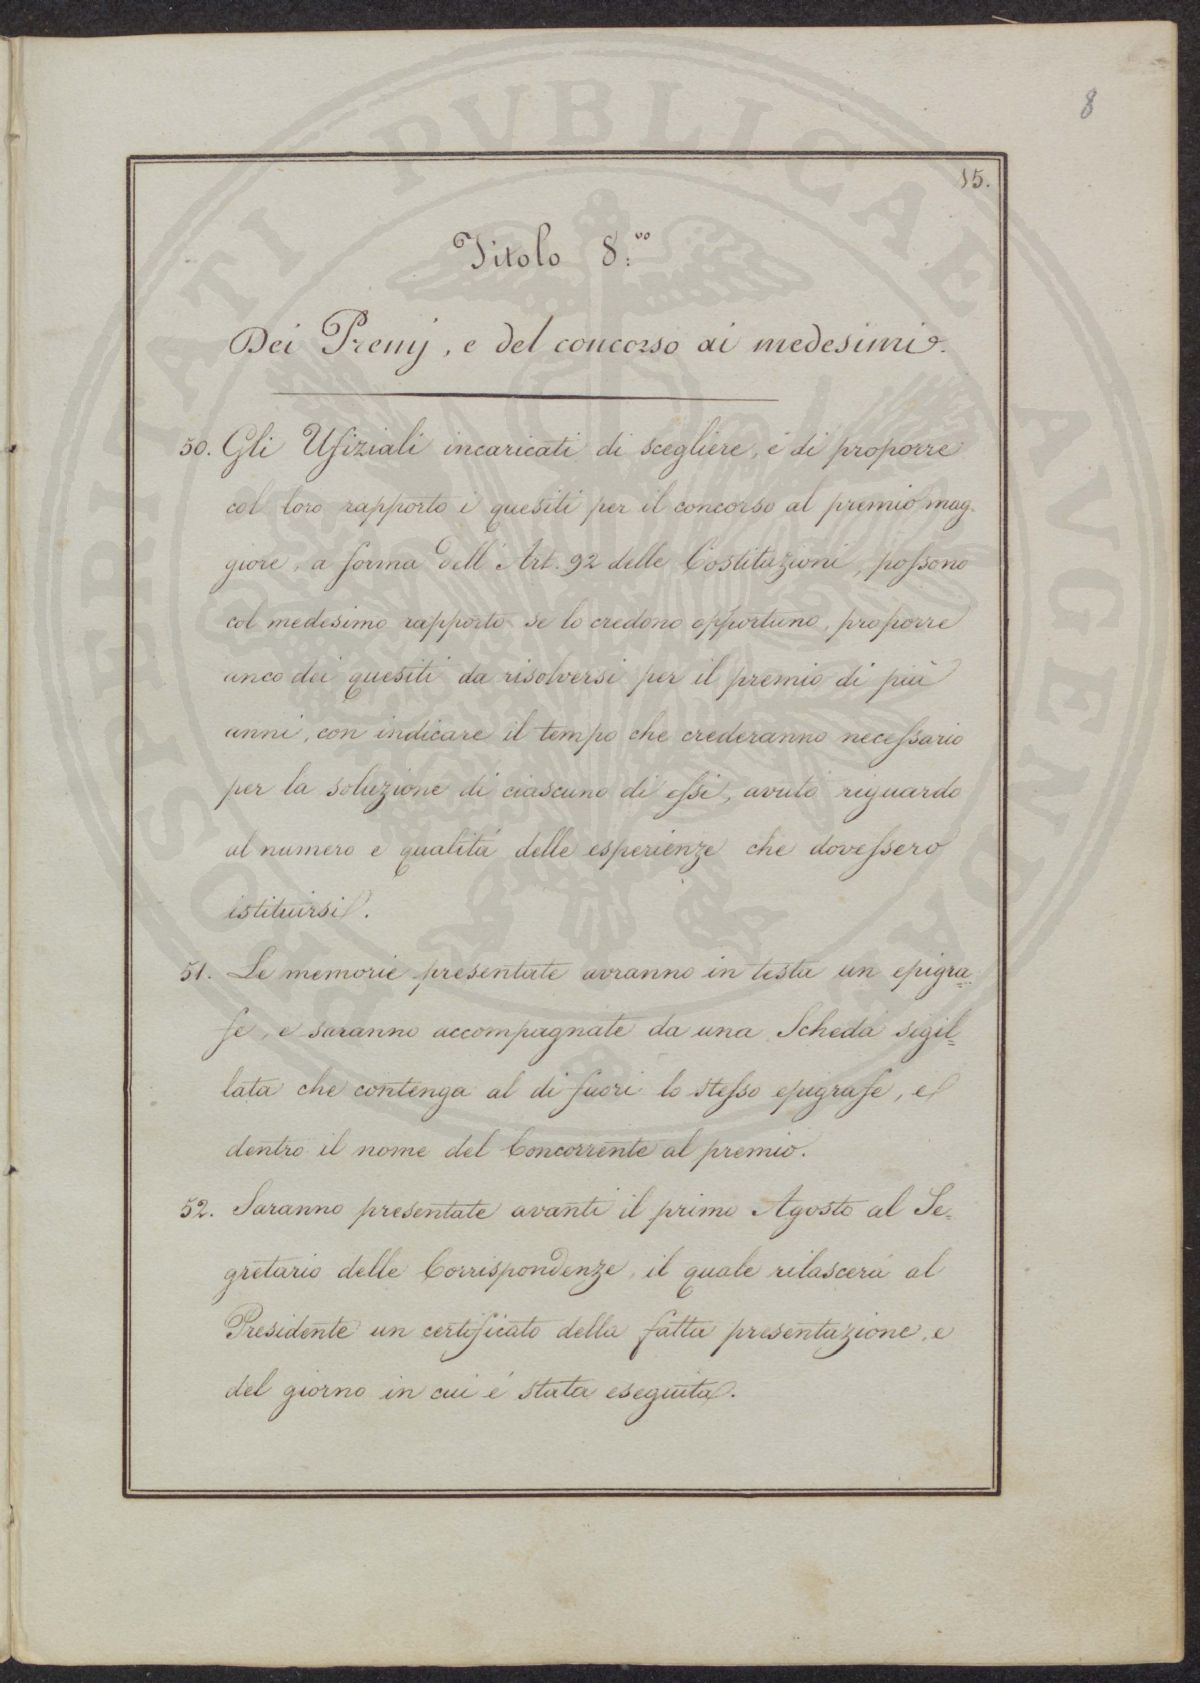 8
15.
Titolo 8.vo
Dei Premj, e del concorso ai medesimi.
50. Gli Ufiziali incaricati di scegliere, e di proporre
col loro rapporto i quesiti per il concorso al premio mag-
giore, a forma dell'Art. 92 delle Costituzioni, possono
col medesimo rapporto se lo credono opportuno, proporre
anco dei quesiti da risolversi per il premio di più
anni, con indicare il tempo che crederanno necessario
per la soluzione di ciascuno di essi, avuto riguardo
al numero e qualità delle esperienze che dovessero
istituirsi.
51. Le memorie presentate avranno in testa un epigra=
fe, e saranno accompagnate da una Scheda sigil=
lata che contenga al di fuori lo stesso epigrafe, e
dentro il nome del Concorrente al premio.
52. Saranno presentate avanti il primo Agosto al Se=
gretario delle Corrispondenze, il quale rilascerà al
Presidente un certificato della fatta presentazione, e
del giorno in cui é stata eseguita.
PROSPERITATI PVBLICAE AVGENDAE